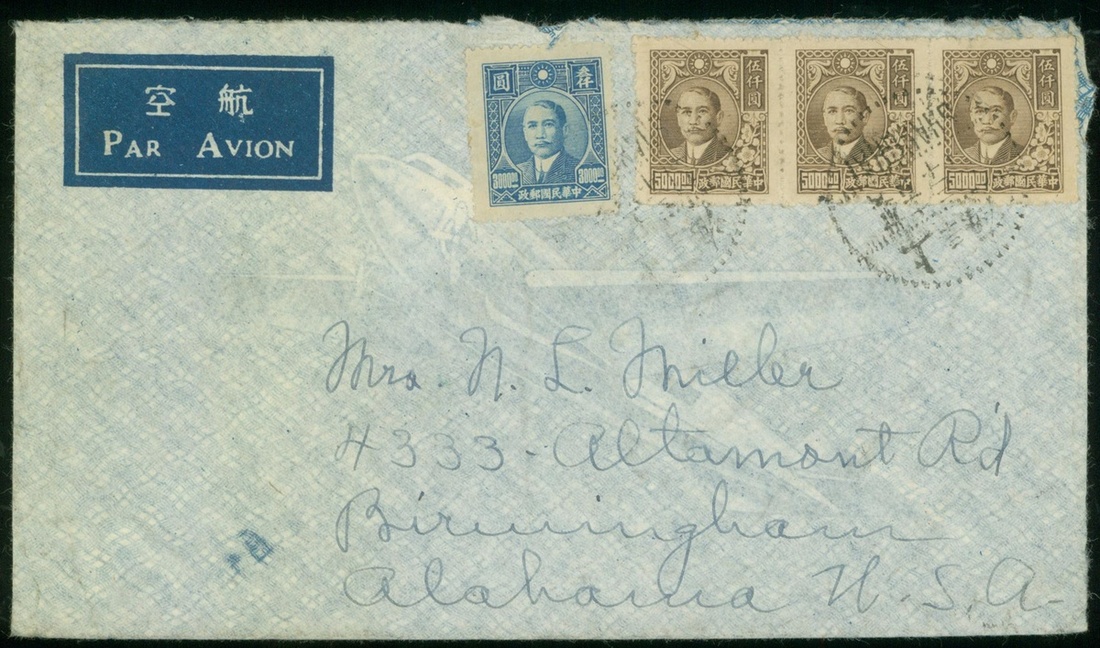 空航
PAR AVION
圓 叁仟
3000.00 3000.00
政郵國民華中
伍仟圓
5000.00
政郵國民華中
伍仟圓
5000.00
政郵國民華中
伍仟圓
5000.00
政郵國民華中
上
Mrs. N. L. Miller
4333 - Altamont Rd
Birmingham
Alabama U. S. A.